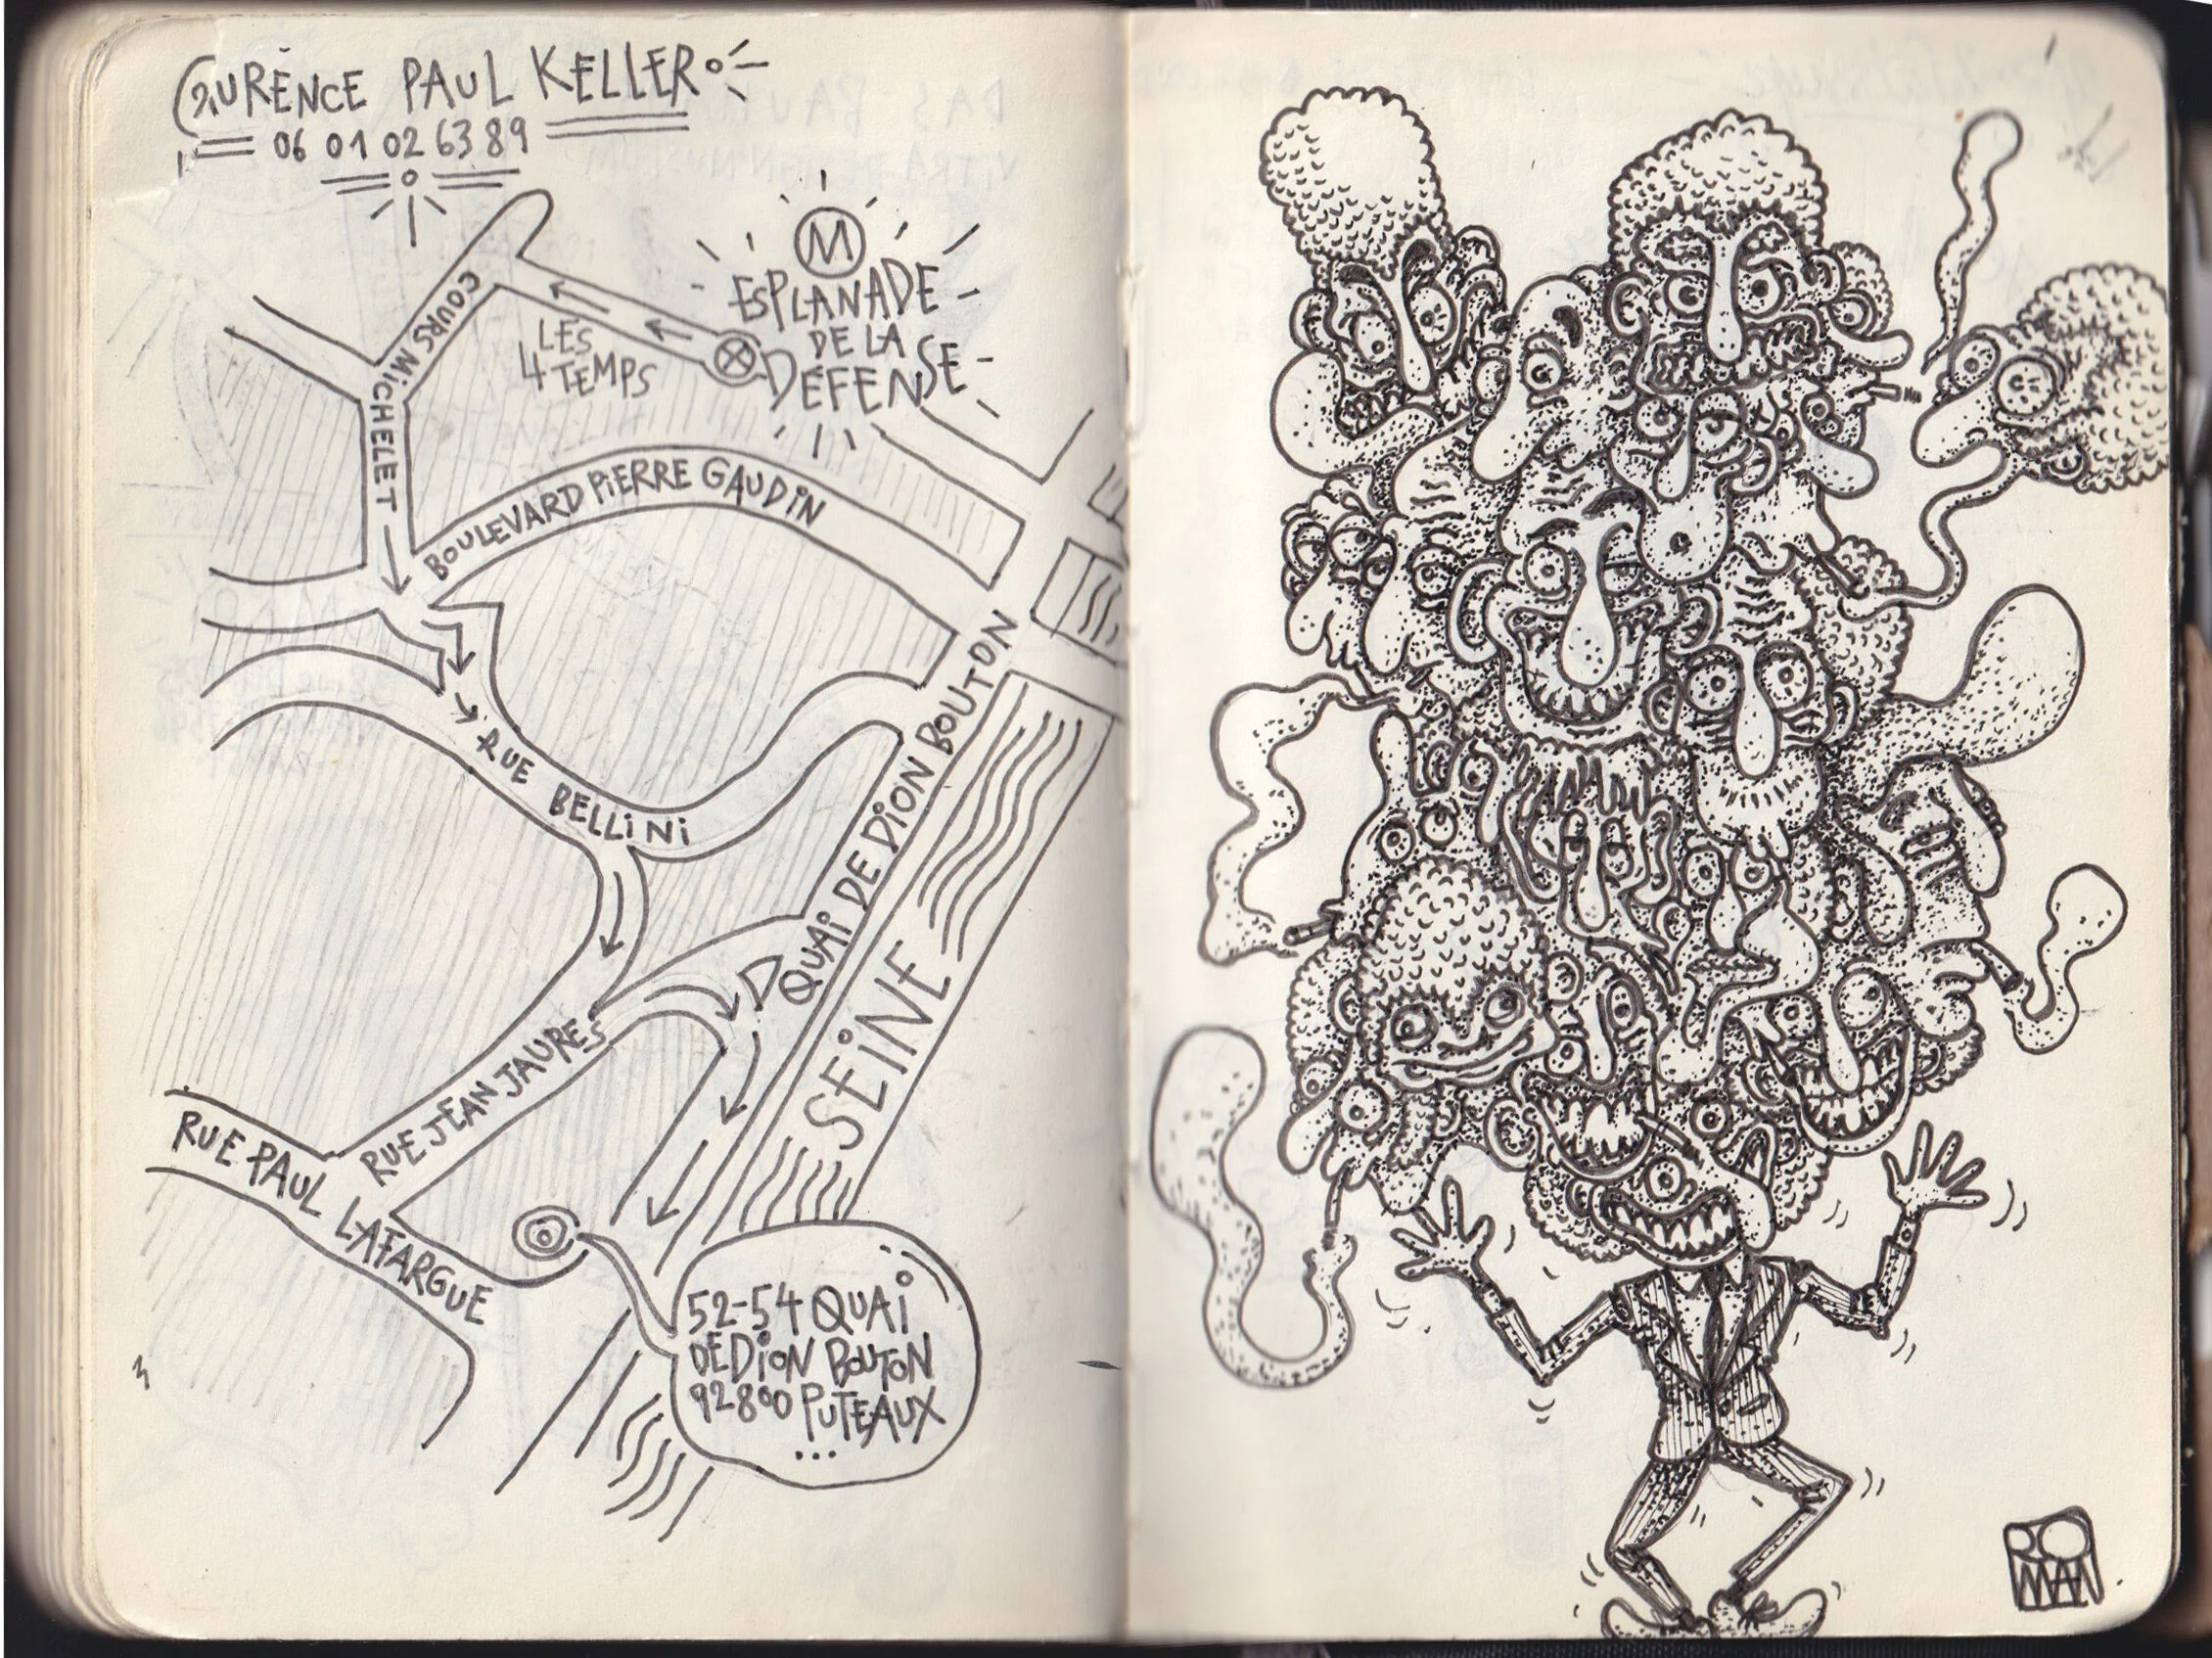 LAURENCE PAUL KELLER
06 01 02 63 89
M
ESPLANADE
DE LA
DÉFENSE
LES
4 TEMPS
COURS MICHELET
BOULEVARD PIERRE GAUDIN
RUE BELLINI
QUAI DE DION BOUTON
SEINE
RUE JEAN JAURES
RUE PAUL LAFARGUE
52-54 QUAI
DEDION BOUTON
92800 PUTEAUX
...
RO
MAN